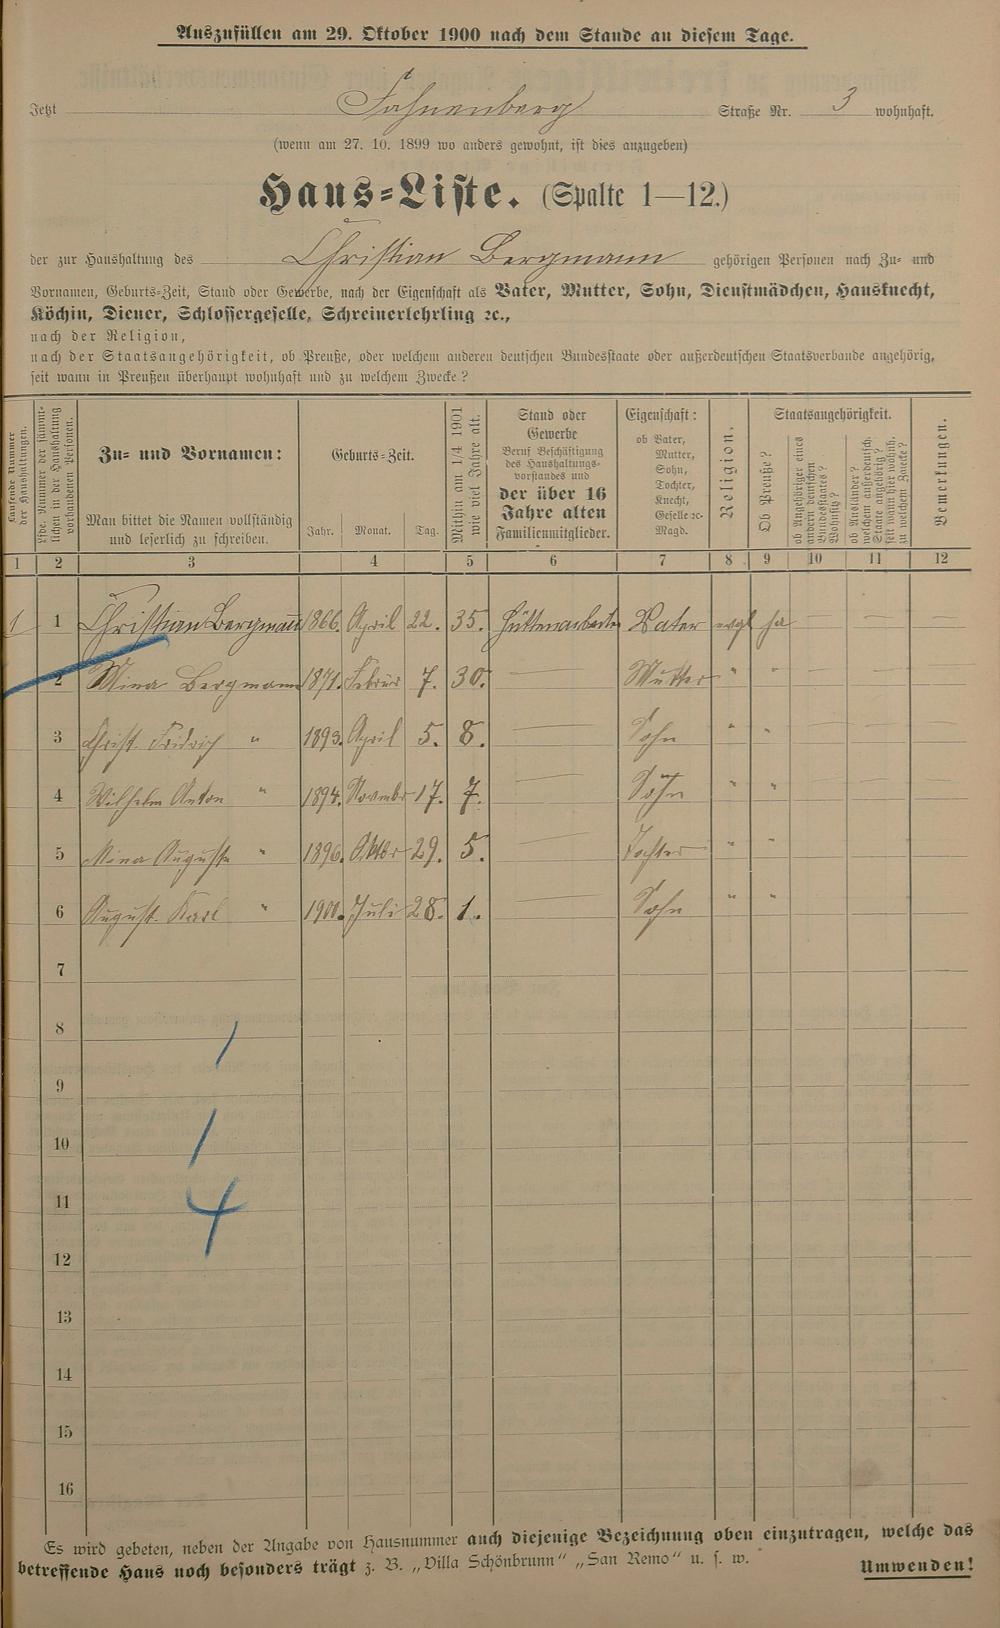 Auszufüllen am 29. Oktober 1900 nach dem Stande an diesem Tage.
Jetzt Fahnenberg Straße Nr. 3 wohnhaft.
(wenn am 27. 10. 1899 wo anders gewohnt, ist dies anzugeben)
Haus-Liste. (Spalte 1—12.)
der zur Haushaltung des Christian Bergmann gehörigen Personen nach Zu- und
Vornamen, Geburts-Zeit, Stand oder Gewerbe, nach der Eigenschaft als Vater, Mutter, Sohn, Dienstmädchen, Hausknecht,
Köchin, Diener, Schlossergeselle, Schreinerlehrling ꝛc.,
nach der Religion,
nach der Staatsangehörigkeit, ob Preuße, oder welchem anderen deutschen Bundesstaate oder außerdeutschen Staatsverbande angehörig,
seit wann in Preußen überhaupt wohnhaft und zu welchem Zwecke?
Laufende Nummer der Haushaltungen.
Lfde. Nummer der sämmtlichen in der Haushaltung vorhandenen Personen.
Zu- und Vornamen:
Man bittet die Namen vollständig
und leserlich zu schreiben.
Geburts-Zeit.
Jahr. Monat. Tag.
Mithin am 1/4 1901 wie viel Jahre alt.
Stand oder
Gewerbe
Beruf Beschäftigung
des Haushaltungs-
vorstandes und
der über 16
Jahre alten
Familienmitglieder.
Eigenschaft:
ob Vater,
Mutter,
Sohn,
Tochter,
Knecht,
Geselle ꝛc.
Magd.
Religion.
Staatsangehörigkeit.
Ob Preuße?
ob Angehöriger eines andern deutschen Bundesstaates? Wohnsitz?
ob Ausländer? welchem außerdeutsch. Staate angehörig? seit wann hier wohnh. zu welchem Zwecke?
Bemerkungen.
1 2 3 4 5 6 7 8 9 10 11 12
1 1 Christian Bergmann 1866. April 22. 35. Hüttenarbeiter Vater evgl ja — —
2 Mina Bergmann 1871. Februar 7. 30. — Mutter " " — —
3 Christ. Fridrich " 1893. April 5. 8. — Sohn " " — —
4 Wilhelm Anton " 1894. Novmbr 17. 7. — Sohn " " " "
5 Mina Auguste " 1896. Oktbr 29. 5. — Tochter " "
6 August Karl " 1900. Juli 28. 1. — Sohn " "
7
8
9
10
11
12
13
14
15
16
1
1
4
Es wird gebeten, neben der Angabe von Hausnummer auch diejenige Bezeichnung oben einzutragen, welche das
betreffende Haus noch besonders trägt z. B. „Villa Schönbrunn“ „San Remo“ u. s. w.
Umwenden!